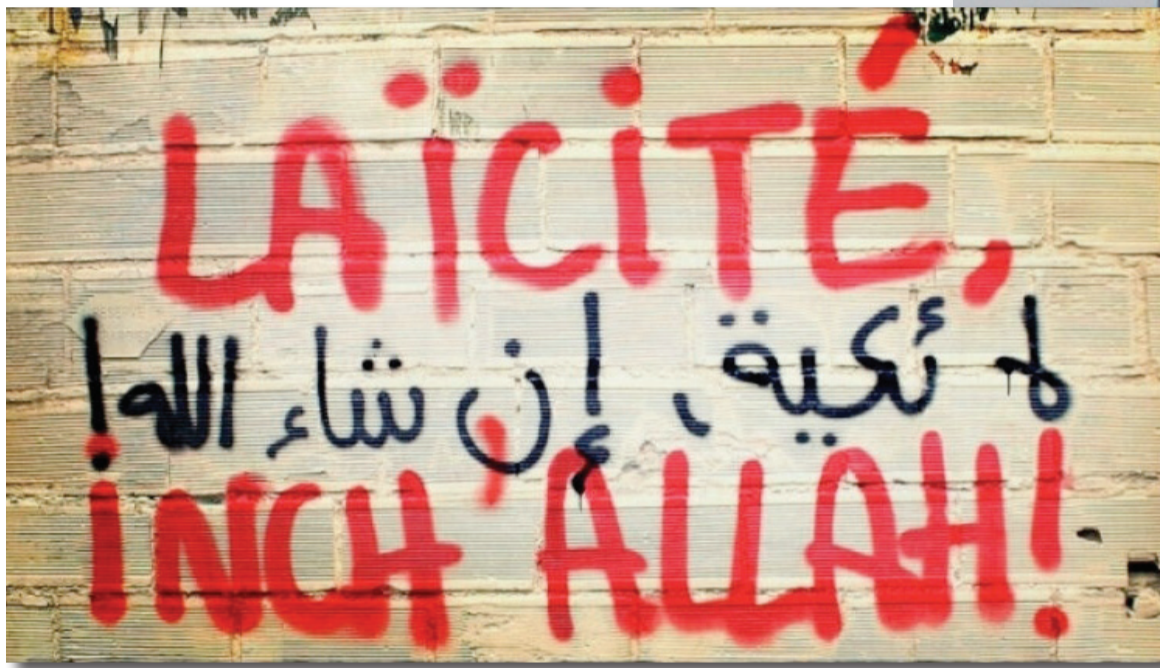 LAÏCITÉ,
لائكية، إن شاء الله!
INCH'ALLAH!